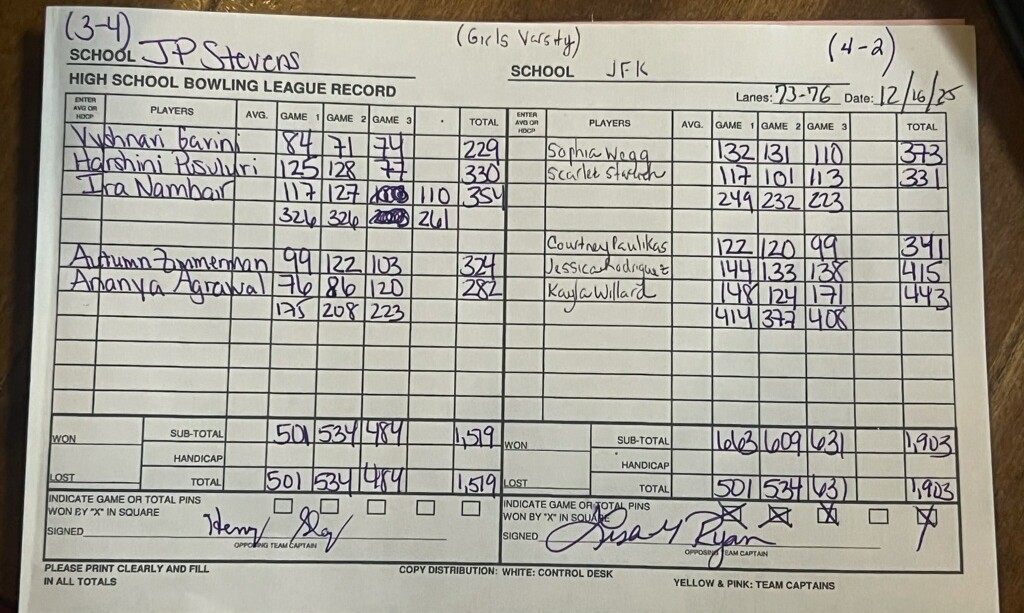 (3-4) (Girls Varsity) (4-2)
SCHOOL JP Stevens SCHOOL JFK
HIGH SCHOOL BOWLING LEAGUE RECORD Lanes: 73-76 Date: 12/16/25
ENTER AVG OR HDCP PLAYERS AVG. GAME 1 GAME 2 GAME 3 TOTAL ENTER AVG OR HDCP PLAYERS AVG. GAME 1 GAME 2 GAME 3 TOTAL
84 71 74 229 Sophia 132 131 110 373
Harshini 125 128 77 330 Scarlet 117 101 113 331
Ira Nambair 117 127 110 354 249 232 223
326 326 261
Courtney Paulikas 122 120 99 341
Autumn Zimmerman 99 122 103 324 Jessica Rodriguez 144 133 138 415
Ananya Agrawal 76 86 120 282 Kayla Willard 148 124 171 443
175 208 223 414 377 408
WON SUB-TOTAL 501 534 484 1,519 WON SUB-TOTAL 663 609 631 1,903
HANDICAP HANDICAP
LOST TOTAL 501 534 484 1,519 LOST TOTAL 501 534 631 1,903
INDICATE GAME OR TOTAL PINS INDICATE GAME OR TOTAL PINS
WON BY "X" IN SQUARE WON BY "X" IN SQUARE X X X X
SIGNED Henry SIGNED Lisa M Ryan
OPPOSING TEAM CAPTAIN OPPOSING TEAM CAPTAIN
PLEASE PRINT CLEARLY AND FILL COPY DISTRIBUTION: WHITE: CONTROL DESK YELLOW & PINK: TEAM CAPTAINS
IN ALL TOTALS